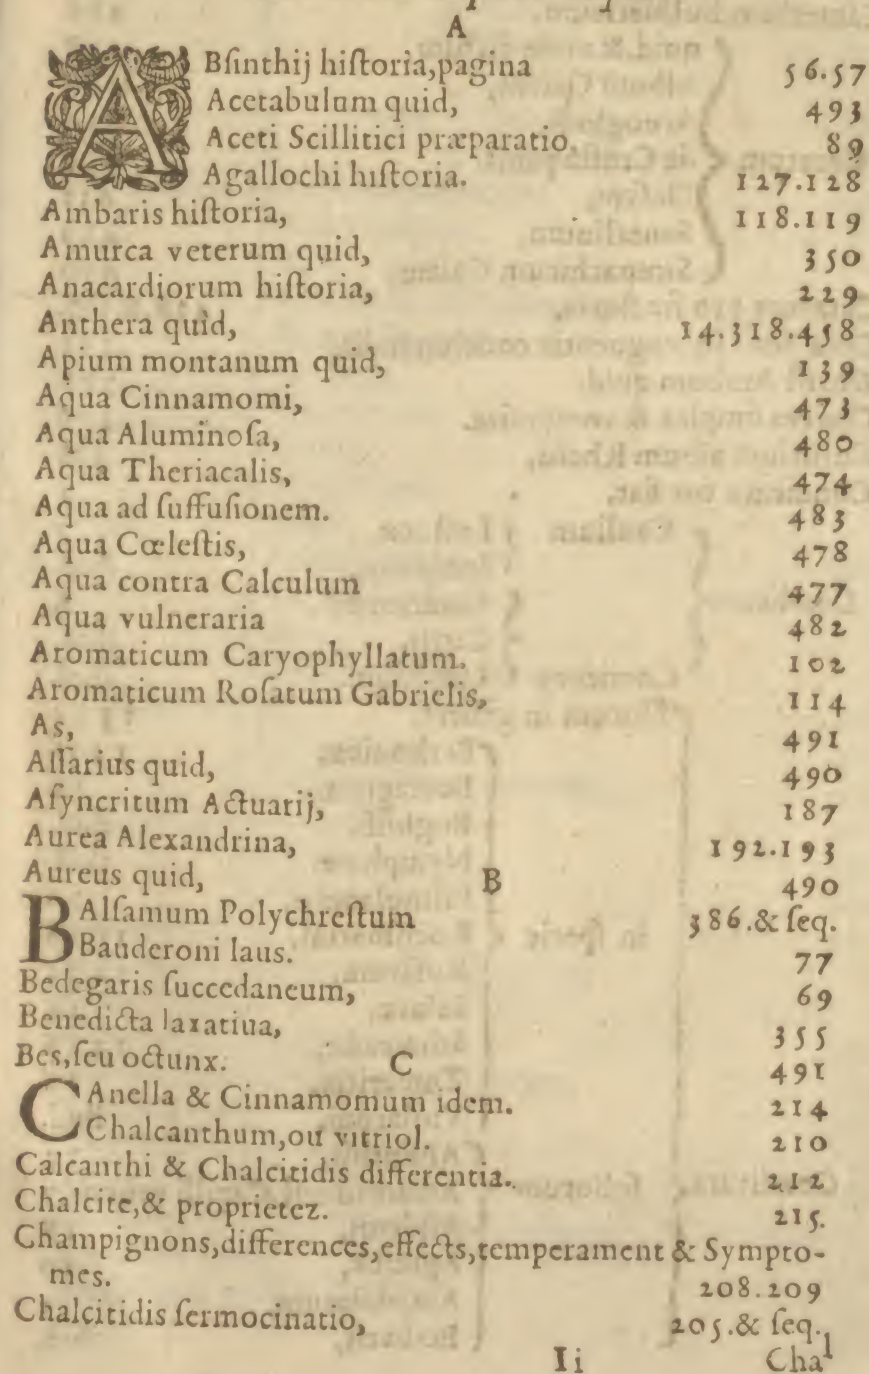 A
ABſinthij hiſtoria,pagina 56.57
Acetabulum quid, 493
Aceti Scillitici præparatio. 89
Agallochi hiſtoria. 127.128
Ambaris hiſtoria, 118.119
Amurca veterum quid, 350
Anacardiorum hiſtoria, 229
Anthera quid, 14.318.458
Apium montanum quid, 139
Aqua Cinnamomi, 473
Aqua Aluminoſa, 480
Aqua Theriacalis, 474
Aqua ad ſuffuſionem. 483
Aqua Cœleſtis, 478
Aqua contra Calculum 477
Aqua vulneraria 482
Aromaticum Caryophyllatum. 102
Aromaticum Roſatum Gabrielis, 114
As, 491
Aſſarius quid, 490
Aſyncritum Actuarij, 187
Aurea Alexandrina, 192.193
Aureus quid, 490
B
BAlſamum Polychreſtum 386.& ſeq.
Bauderoni laus. 77
Bedegaris ſuccedaneum, 69
Benedicta laxatiua, 355
Bes,ſeu octunx. 491
C
CAnella & Cinnamomum idem. 214
Chalcanthum,ou vitriol. 210
Calcanthi & Chalcitidis differentia. 212
Chalcite,& proprietez. 215.
Champignons,differences,effects,temperament & Sympto-
mes. 208.209
Chalcitidis ſermocinatio, 205.& ſeq.
Ii Cha